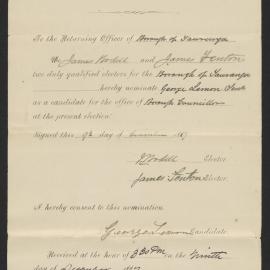 To the Returning Officer of Borough of Tauranga
We James Bodell and James Fenton
two duly qualified electors for the Borough of Tauranga
hereby nominate George Lemon
as a candidate for the office of Borough Councillor
at the present election.
Signed this 9th day of December 18
J Bodell Elector.
James Fenton Elector.
I hereby consent to this nomination.
George Lemon Candidate
Received at the hour of 3.30 PM on the Ninth
day of December